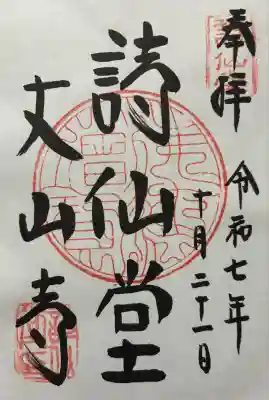 奉拝
令和七年
十月二十一日
詩仙堂
丈山寺